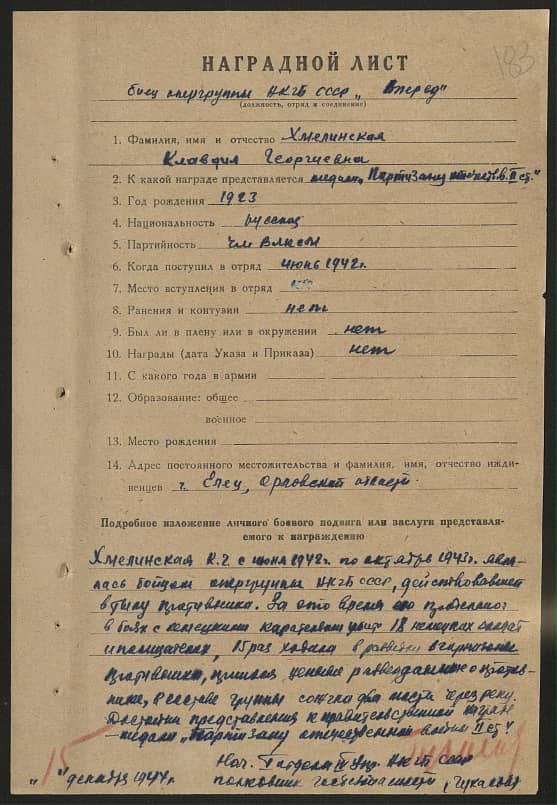 183
НАГРАДНОЙ ЛИСТ
боец опергруппы НКГБ СССР „Вперед"
(должность, отряд и соединение)
1. Фамилия, имя и отчество Хмелинская
Клавдия Георгиевна
2. К какой награде представляется медали „Партизану отечеств. в. II ст."
3. Год рождения 1923
4. Национальность русская
5. Партийность чл. ВЛКСМ
6. Когда поступил в отряд июнь 1942 г.
7. Место вступления в отряд
8. Ранения и контузии нет
9. Был ли в плену или в окружении нет
10. Награды (дата Указа и Приказа) нет
11. С какого года в армии
12. Образование: общее
военное
13. Место рождения
14. Адрес постоянного местожительства и фамилия, имя, отчество ижди-
венцев г. Елец, Орловской области.
Подробное изложение личного боевого подвига или заслуги представля-
емого к награждению
Хмелинская К.Г. с июня 1942 г. по октябрь 1943 г. явля-
лась бойцом опергруппы НКГБ СССР, действовавшей
в тылу противника. За это время
в боях с немецкими карателями 18 немецких солдат
и полицейских, 15 раз ходила в разведки в гарнизоны
противника, приносила ценные разведданные о против-
нике, в составе группы сожгла два моста через реку.
Достойна представления к правительственной награде
– медали „Партизану отечественной войны II ст."
Нач. отдела Упр. НКГБ СССР
полковник госбезопасности
15
„ " декабря 1944 г.